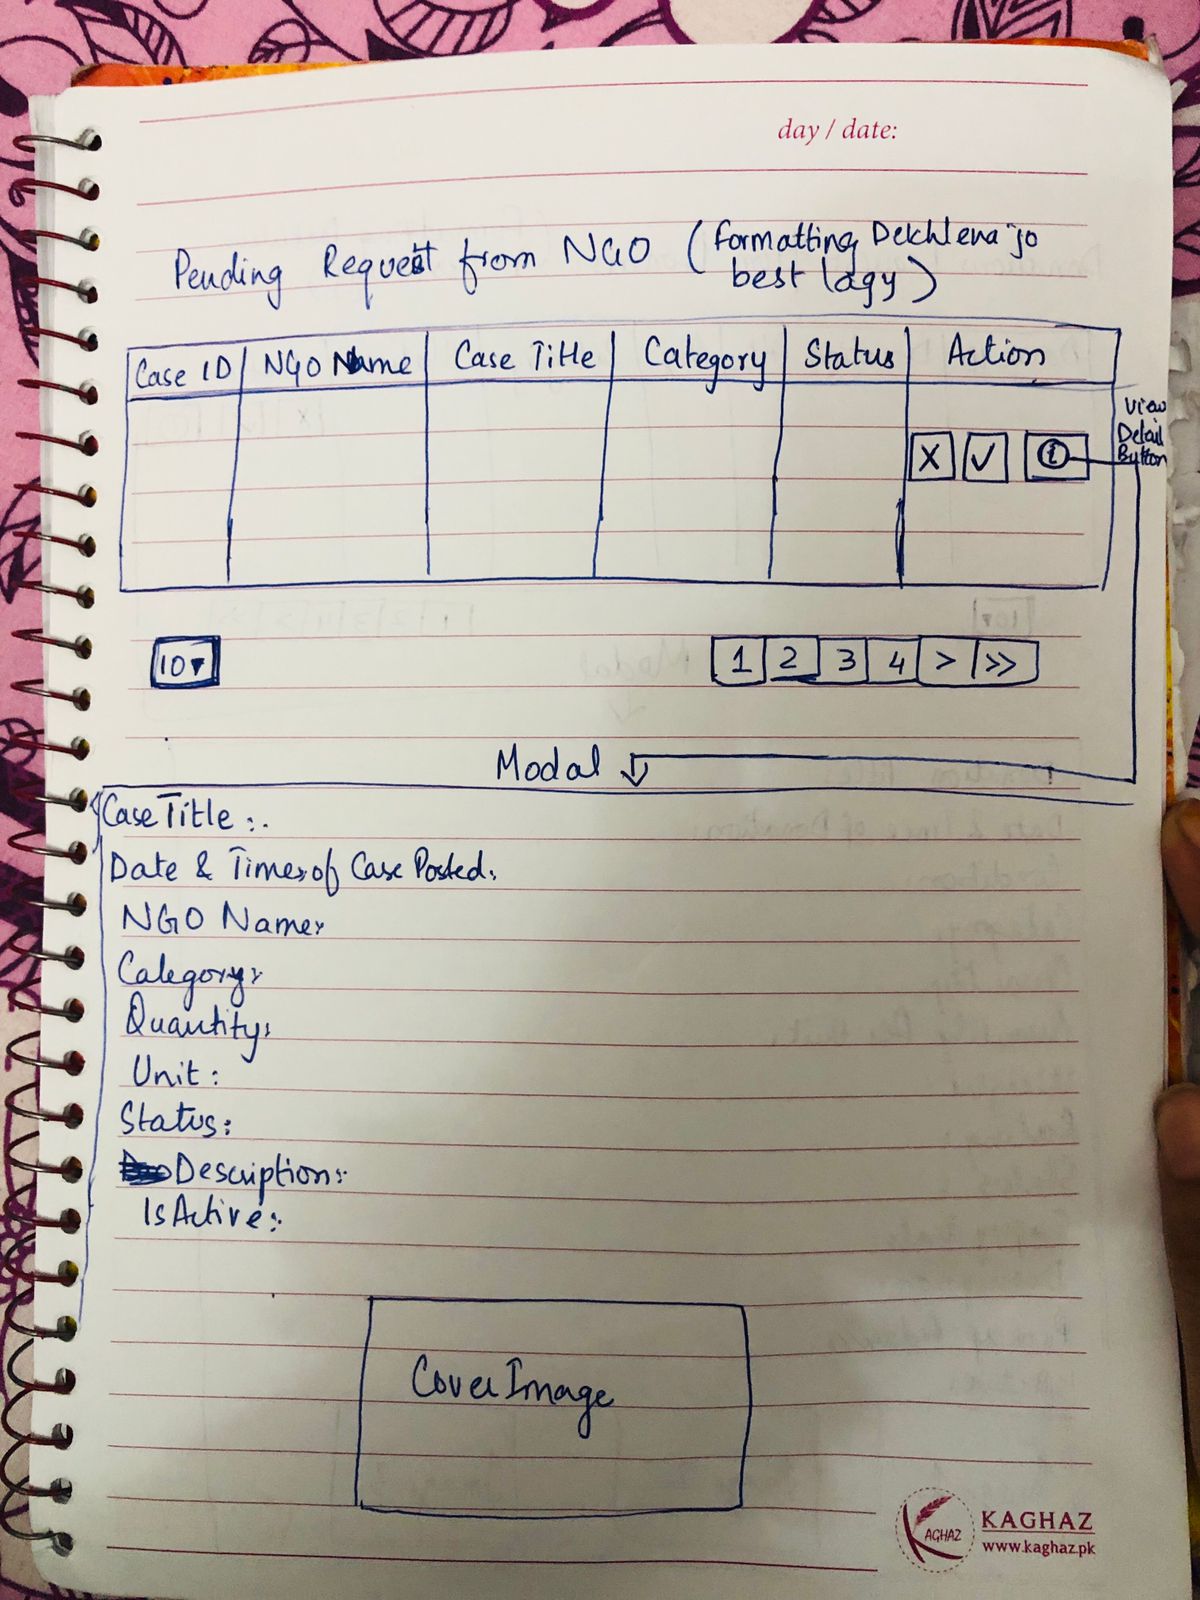 day / date:
Pending Request from NGO (formatting Dekhlena jo
best lagy)
Case ID NGO Name Case Title Category Status Action
View
Detail
Button
X ✓ i
10▼
1 2 3 4 > >>
Modal
Case Title :
Date & Time of Case Posted:
NGO Name:
Category:
Quantity:
Unit :
Status:
Description:
IsActive:
Cover Image
KAGHAZ
AGHAZ
www.kaghaz.pk